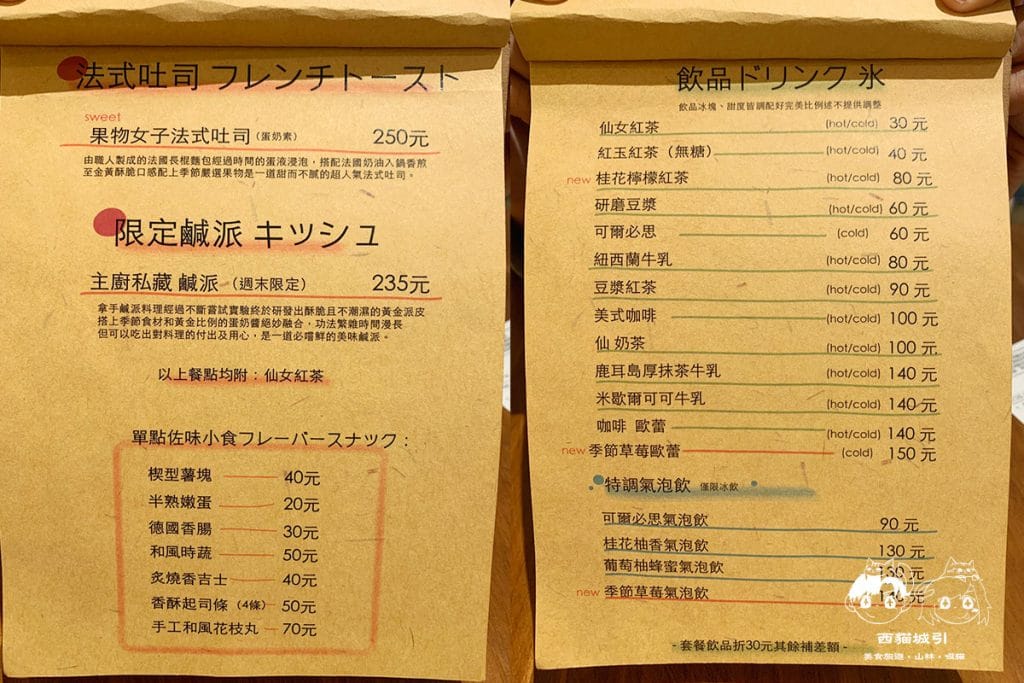 法式吐司 フレンチトースト
sweet
果物女子法式吐司 (蛋奶素) 250元
由職人製成的法國長棍麵包經過時間的蛋液浸泡，搭配法國奶油入鍋香煎
至金黃酥脆口感配上季節嚴選果物是一道甜而不膩的超人氣法式吐司。
限定鹹派 キッシュ
主廚私藏 鹹派 （週末限定） 235元
拿手鹹派料理經過不斷嘗試實驗終於研發出酥脆且不潮濕的黃金派皮
搭上季節食材和黃金比例的蛋奶醬絕妙融合，功法繁雜時間漫長
但可以吃出對料理的付出及用心，是一道必嚐鮮的美味鹹派。
以上餐點均附：仙女紅茶
單點佐味小食フレーバースナック：
楔型薯塊 40元
半熟嫩蛋 20元
德國香腸 30元
和風時蔬 50元
炙燒香吉士 40元
香酥起司條 (4條) 50元
手工和風花枝丸 70元
飲品ドリンク 氷
飲品冰塊、甜度皆調配好完美比例述不提供調整
仙女紅茶 (hot/cold) 30 元
紅玉紅茶（無糖） (hot/cold) 40 元
new 桂花檸檬紅茶 (hot/cold) 80 元
研磨豆漿 (hot/cold) 60 元
可爾必思 (cold) 60 元
紐西蘭牛乳 (hot/cold) 80 元
豆漿紅茶 (hot/cold) 90 元
美式咖啡 (hot/cold) 100 元
仙 奶茶 (hot/cold) 100 元
鹿耳島厚抹茶牛乳 (hot/cold) 140 元
米歇爾可可牛乳 (hot/cold) 140 元
咖啡 歐蕾 (hot/cold) 140 元
new 季節草莓歐蕾 (cold) 150 元
特調氣泡飲 僅限冰飲
可爾必思氣泡飲 90 元
桂花柚香氣泡飲 130 元
葡萄柚蜂蜜氣泡飲 元
new 季節草莓氣泡飲 元
西貓城引
美食旅遊・山林・喂貓
- 套餐飲品折30元其餘補差額 -